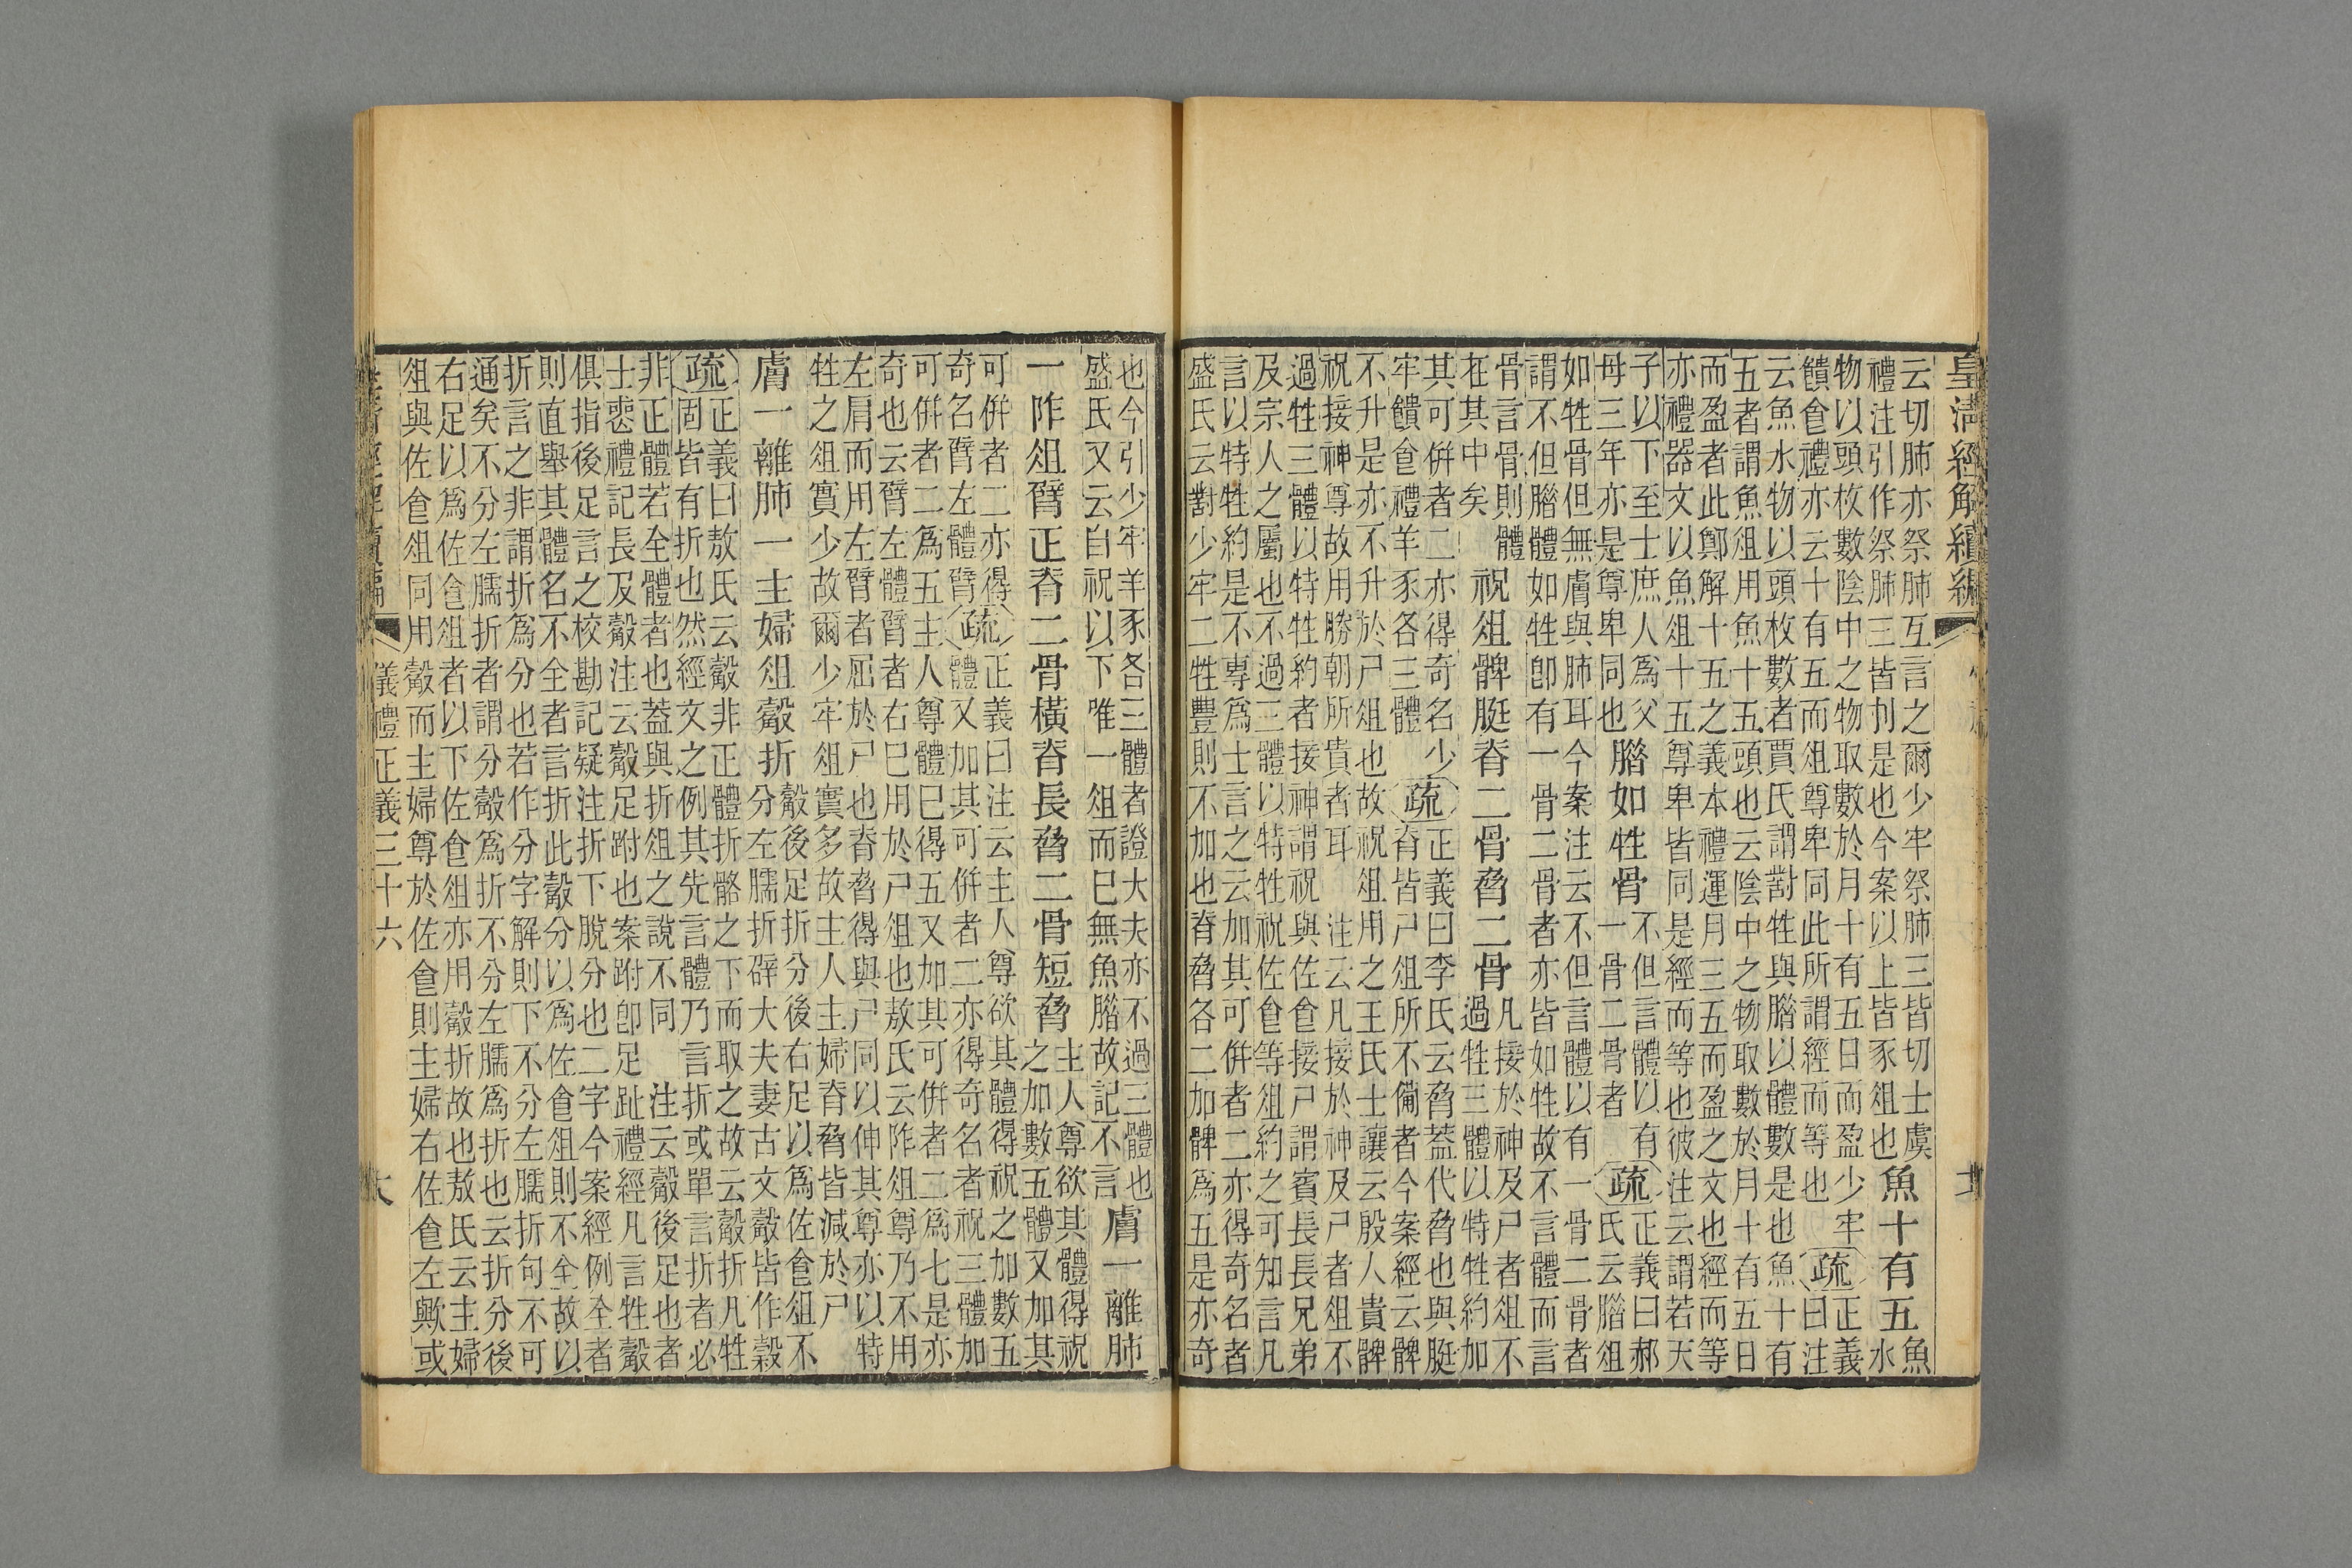 皇清經解續編
云切肺亦祭肺互言之爾少牢祭肺三皆切士虞
禮注引作祭肺三皆刌是也今案以上皆豕俎也
魚十有五
魚
水
物以頭枚數陰中之物取數於月十有五日而盈少牢
饋食禮亦云十有五而俎尊卑同此所謂經而等也
疏
正義
曰注
云魚水物以頭枚數者賈氏謂對牲與腊以體數是也魚十有
五者謂魚俎用魚十五頭也云陰中之物取數於月十有五日
而盈者此鄭解十五之義本禮運月三五而盈之文也經而等
亦禮器文以魚俎十五尊卑皆同是經而等也彼注云謂若天
子以下至士庶人爲父
母三年亦是尊卑同也
腊如牲骨
不但言體以有
一骨二骨者
疏
正義曰郝
氏云腊俎
如牲骨但無膚與肺耳今案注云不但言體以有一骨二骨者
謂不但腊體如牲卽有一骨二骨者亦皆如牲故不言體而言
骨言骨則體
在其中矣
祝俎髀脡脊二骨脅二骨
凡接於神及尸者俎不
過牲三體以特牲約加
其可併者二亦得奇名少
牢饋食禮羊豕各三體
疏
正義曰李氏云脅蓋代脅也與脡
脊皆尸俎所不備者今案經云髀
不升是亦不升於尸俎也故祝俎用之王氏士讓云殷人貴髀
祝接神尊故用勝朝所貴者耳 注云凡接於神及尸者俎不
過牲三體以特牲約者接神謂祝與佐食接尸謂賓長長兄弟
及宗人之屬也不過三體以特牲祝佐食等俎約之可知言凡
言以特牲約是不專爲士言之云加其可併者二亦得奇名者
盛氏云對少牢二牲豐則不加也脊脅各二加髀爲五是亦奇
也今引少牢羊豕各三體者證大夫亦不過三體也
盛氏又云自祝以下唯一俎而已無魚腊故記不言
膚一離肺
一阼俎臂正脊二骨橫脊長脅二骨短脅
主人尊欲其體得祝
之加數五體又加其
可併者二亦得
奇名臂左體臂
疏
正義曰注云主人尊欲其體得祝之加數五
體又加其可併者二亦得奇名者祝三體加
可併者二爲五主人尊體巳得五又加其可併者二爲七是亦
奇也云臂左體臂者右巳用於尸俎也敖氏云阼俎尊乃不用
左肩而用左臂者屈於尸也脊脅得與尸同以伸其尊亦以特
牲之俎實少故爾少牢俎實多故主人主婦脊脅皆減於尸
膚一離肺一主婦俎觳折
觳後足折分後右足以爲佐食俎不
分左臑折辟大夫妻古文觳皆作穀
疏
正義曰敖氏云觳非正體折骼之下而取之故云觳折凡牲
固皆有折也然經文之例其先言體乃言折或單言折者必
非正體若全體者也蓋與折俎之說不同 注云觳後足也者
士喪禮記長及觳注云觳足跗也案跗卽足趾禮經凡言牲觳
俱指後足言之校勘記疑注折下脫分也二字今案經例全者
則直舉其體名不全者言折此觳分以爲佐食俎則不全故以
折言之非謂折爲分也若作分字解則下不分左臑折句不可
通矣不分左臑折者謂分觳爲折不分左臑爲折也云折分後
右足以爲佐食俎者以下佐食俎亦用觳折故也敖氏云主婦
俎與佐食俎同用觳而主婦尊於佐食則主婦右佐食左歟或
儀禮正義三十六